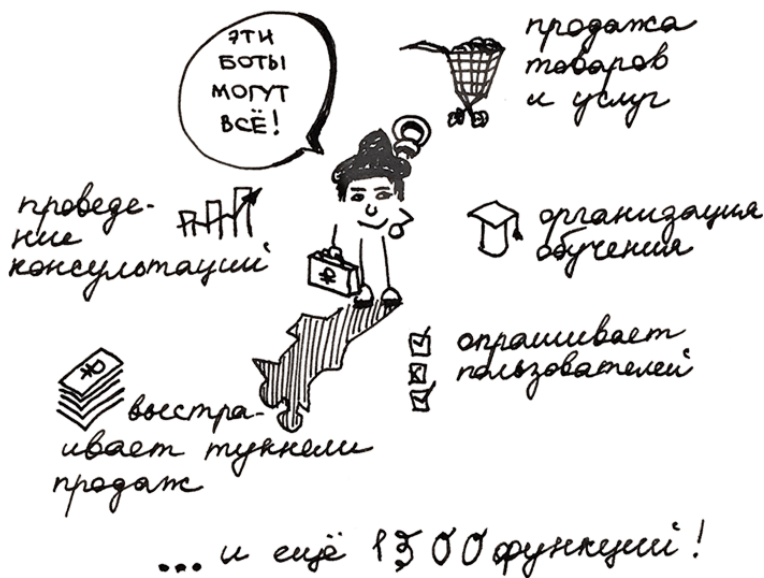 ЭТИ
БОТЫ
МОГУТ
ВСЁ!
продажа
товаров
и услуг
проведе-
ние
консультаций
организация
обучения
опрашивает
пользователей
выстра-
ивает туннели
продаж
... и ещё 1500 функций!